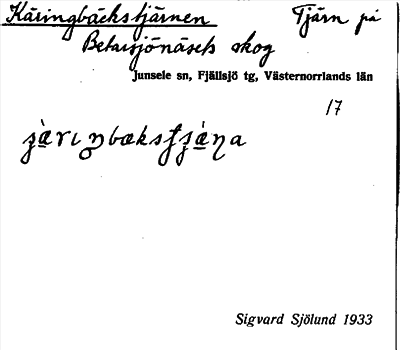 Käringbäckstjärnen Tjärn på
Betarsjönäsets skog
Junsele sn, Fjällsjö tg, Västernorrlands län
17
Sigvard Sjölund 1933